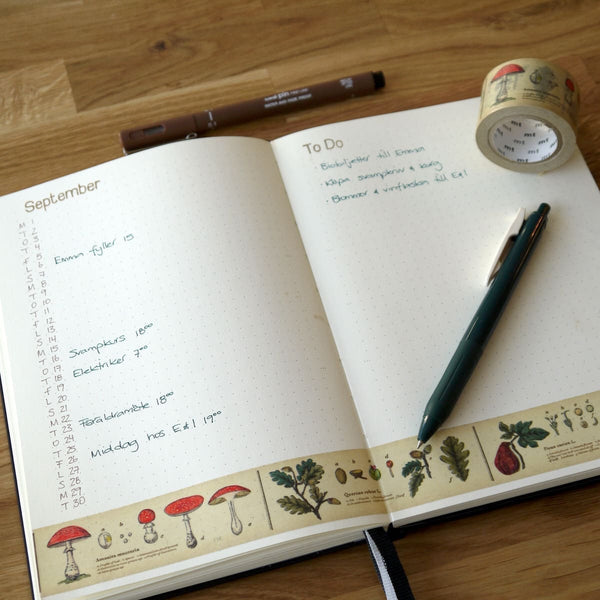 September
M 1
T 2
O 3
T 4
F 5 Emma fyller 15
L 6
S 7
M 8
T 9
O 10
T 11
F 12
L 13
S 14
M 15 Svampkurs 18⁰⁰
T 16
O 17 Elektriker 7⁰⁰
T 18
F 19
L 20
S 21
M 22 Föräldramöte 18⁰⁰
T 23
O 24
T 25 Middag hos E&L 19⁰⁰
F 26
L 27
S 28
M 29
T 30
To Do
· Biobiljetter till Emma
· Köpa svampkniv & korg
· Blommor & vinflaskan till E&L
pin
mt
mt
mt
Amanita muscaria
Quercus robur L.
Ficus carica L.